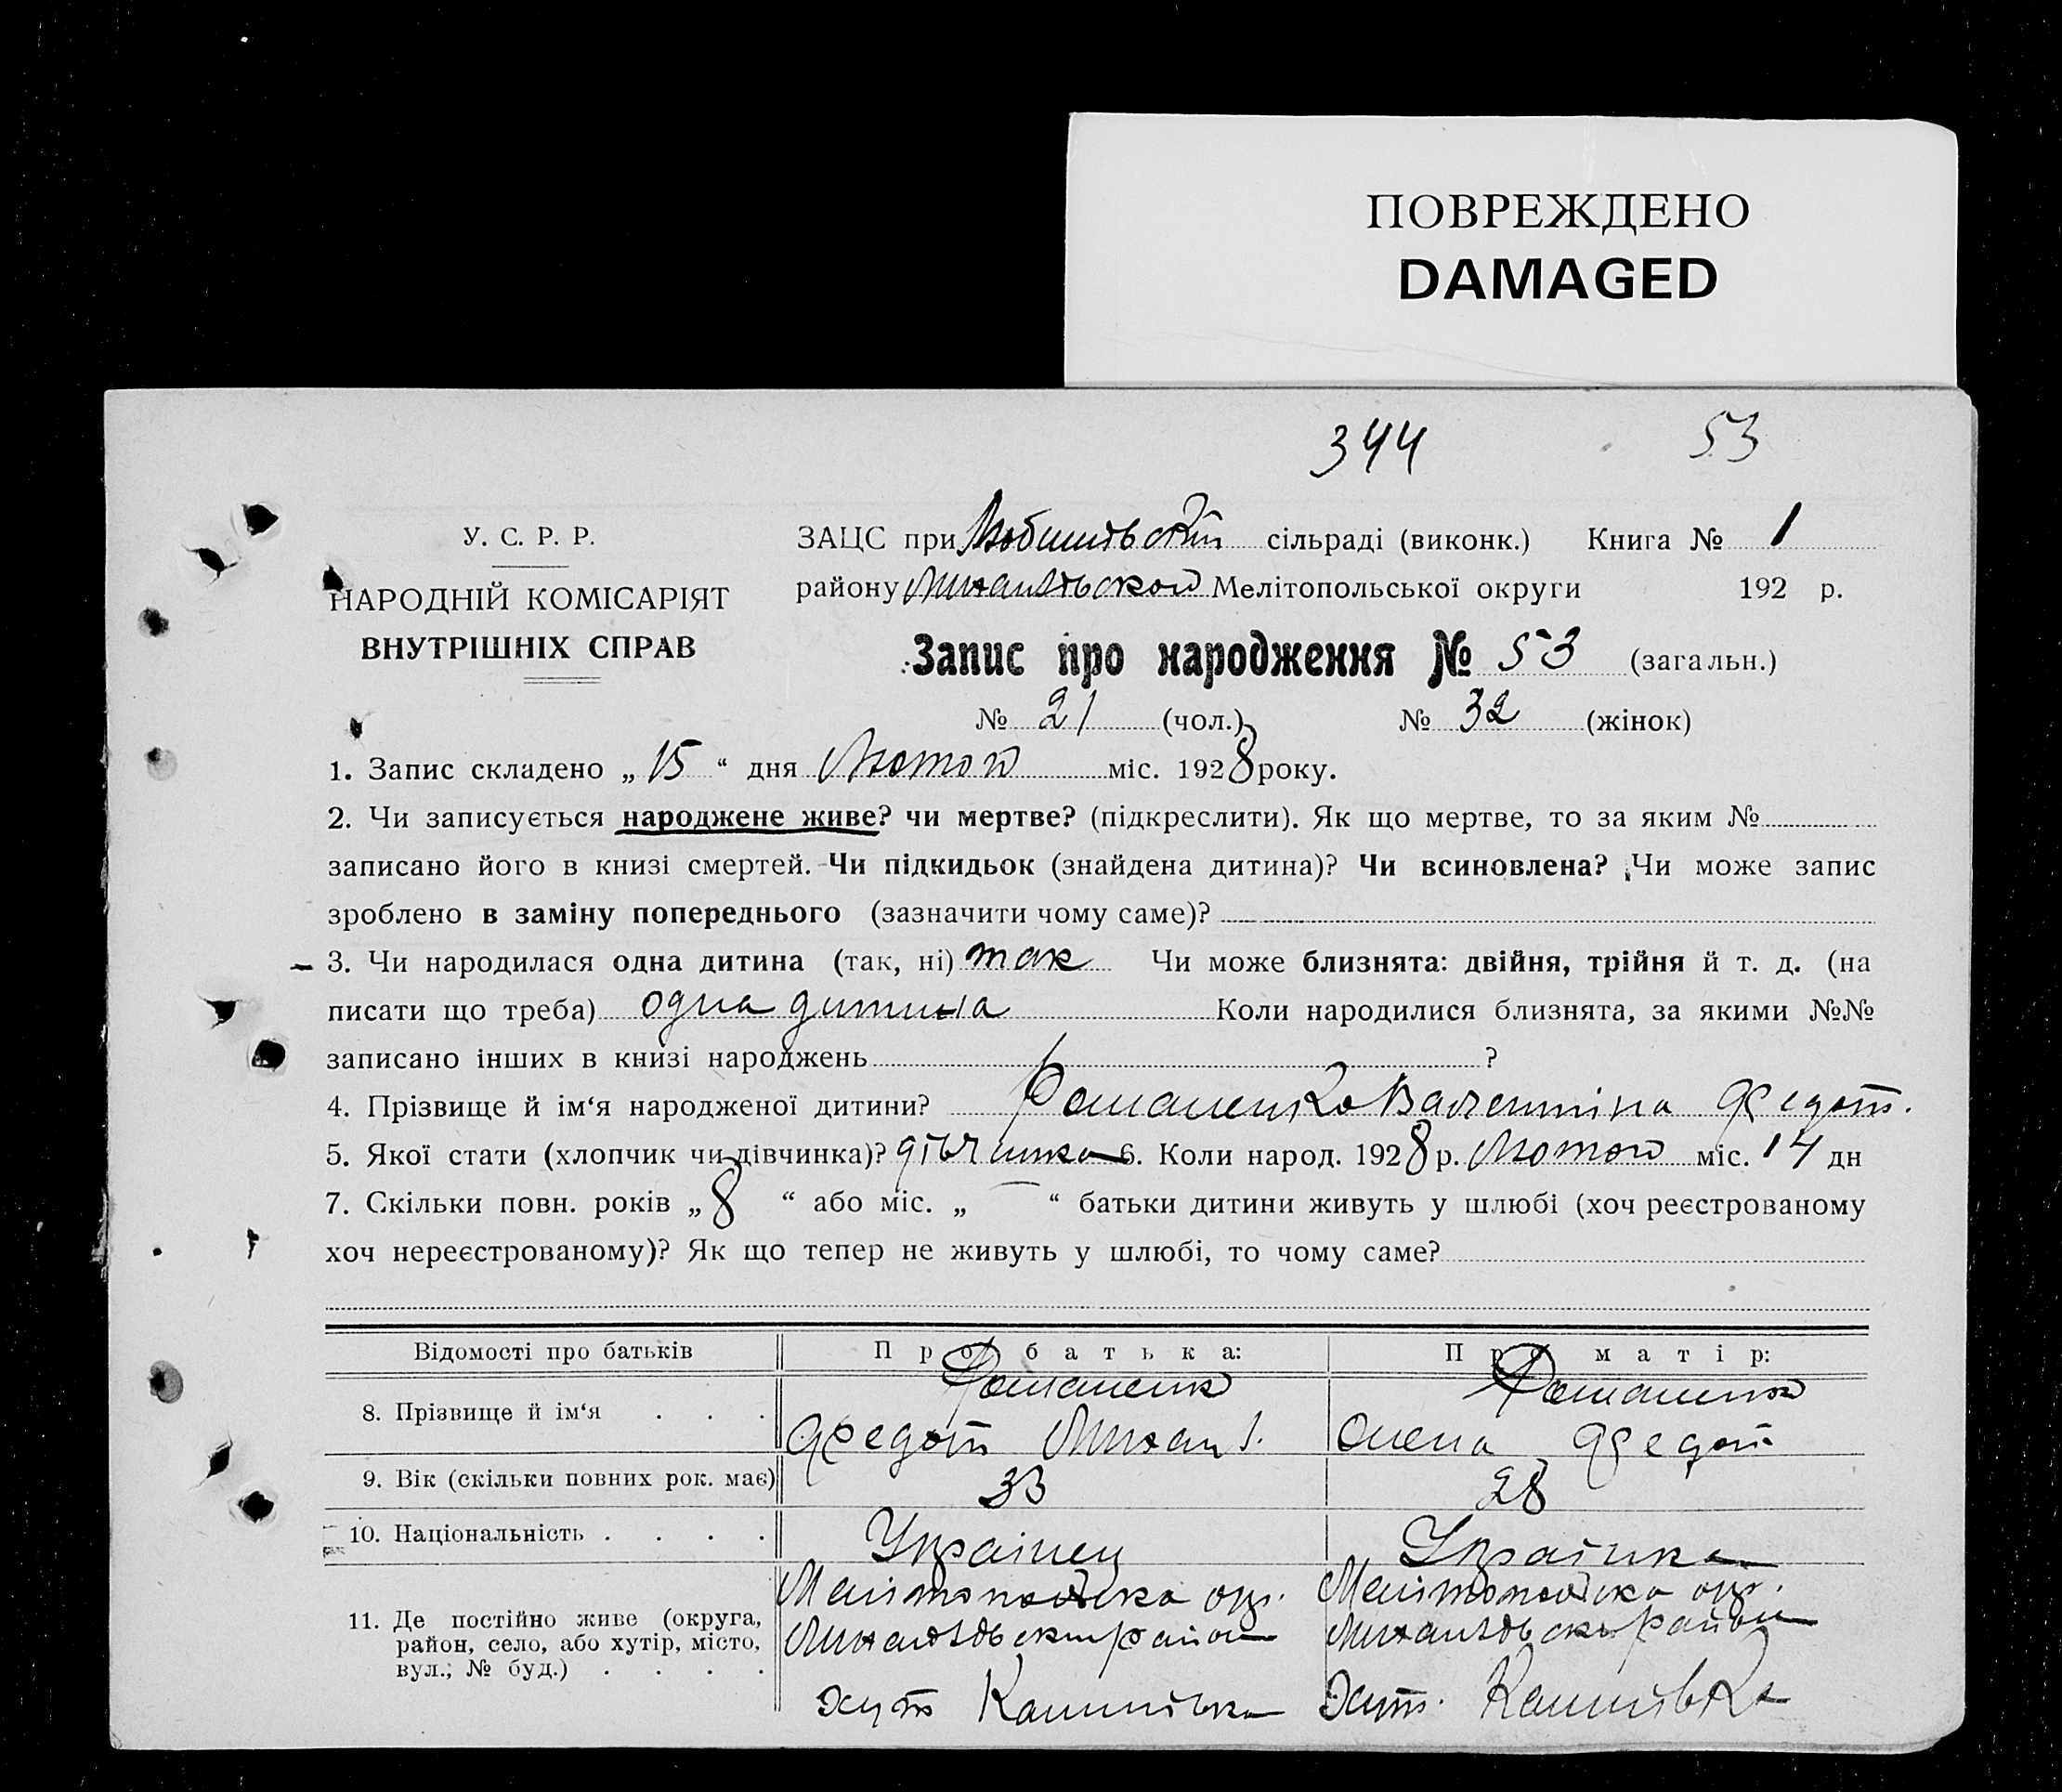 ПОВРЕЖДЕНО
DAMAGED
344 53
У. С. Р. Р.
НАРОДНІЙ КОМІСАРІЯТ
ВНУТРІШНІХ СПРАВ
ЗАЦС при сільраді (виконк.) Книга № 1
району Мелітопольської округи 192 р.
Запис про народження № 53 (загальн.)
№ 21 (чол.) № 32 (жінок)
1. Запис складено „ 15 “ дня Лютого міс. 1928 року.
2. Чи записується народжене живе? чи мертве? (підкреслити). Як що мертве, то за яким №
записано його в книзі смертей. Чи підкидьок (знайдена дитина)? Чи всиновлена? Чи може запис
зроблено в заміну попереднього (зазначити чому саме)?
3. Чи народилася одна дитина (так, ні) так Чи може близнята: двійня, трійня й т. д. (на
писати що треба) одна дитина Коли народилися близнята, за якими №№
записано інших в книзі народжень ?
4. Прізвище й ім‘я народженої дитини? Романенко Валентина Федот.
5. Якої стати (хлопчик чи дівчинка)? дівчинка 6. Коли народ. 1928 р. Лютого міс. 14 дн
7. Скільки повн. років „ 8 “ або міс. „ — “ батьки дитини живуть у шлюбі (хоч реєстрованому
хоч нереєстрованому)? Як що тепер не живуть у шлюбі, то чому саме?
Відомості про батьків Про батька: Про матір:
8. Прізвище й ім‘я . . . Романенко Федот Михай. Романенко Олена Федот
9. Вік (скільки повних рок. має) 33 28
10. Національність . . . . Українец Українка
11. Де постійно живе (округа, Мелітопольска окр. Мелітопольска окр.
район, село, або хутір, місто, район район
вул.; № буд.) . . . . хут хут.